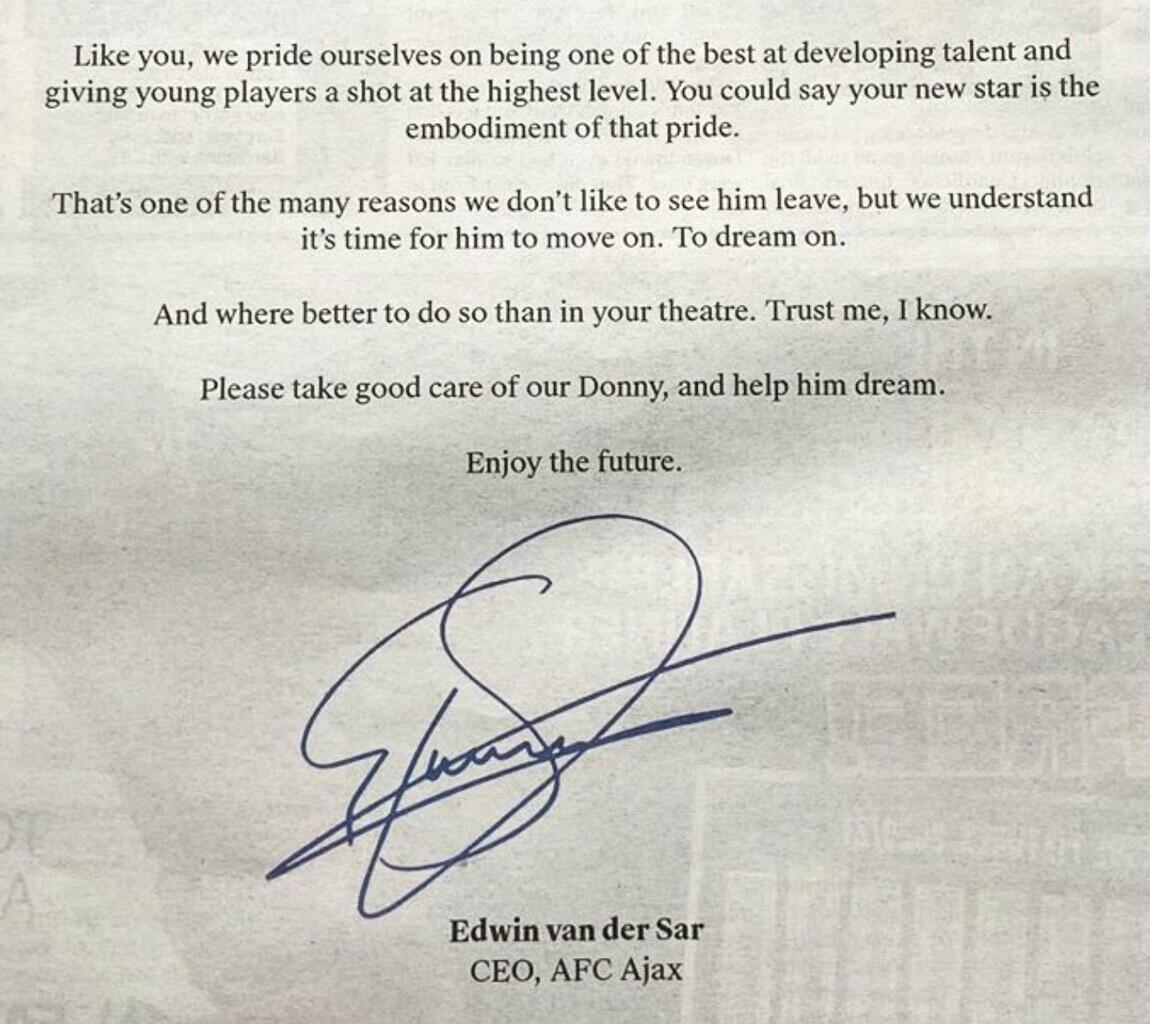 Like you, we pride ourselves on being one of the best at developing talent and
giving young players a shot at the highest level. You could say your new star is the
embodiment of that pride.
That’s one of the many reasons we don’t like to see him leave, but we understand
it’s time for him to move on. To dream on.
And where better to do so than in your theatre. Trust me, I know.
Please take good care of our Donny, and help him dream.
Enjoy the future.
Edwin van der Sar
CEO, AFC Ajax